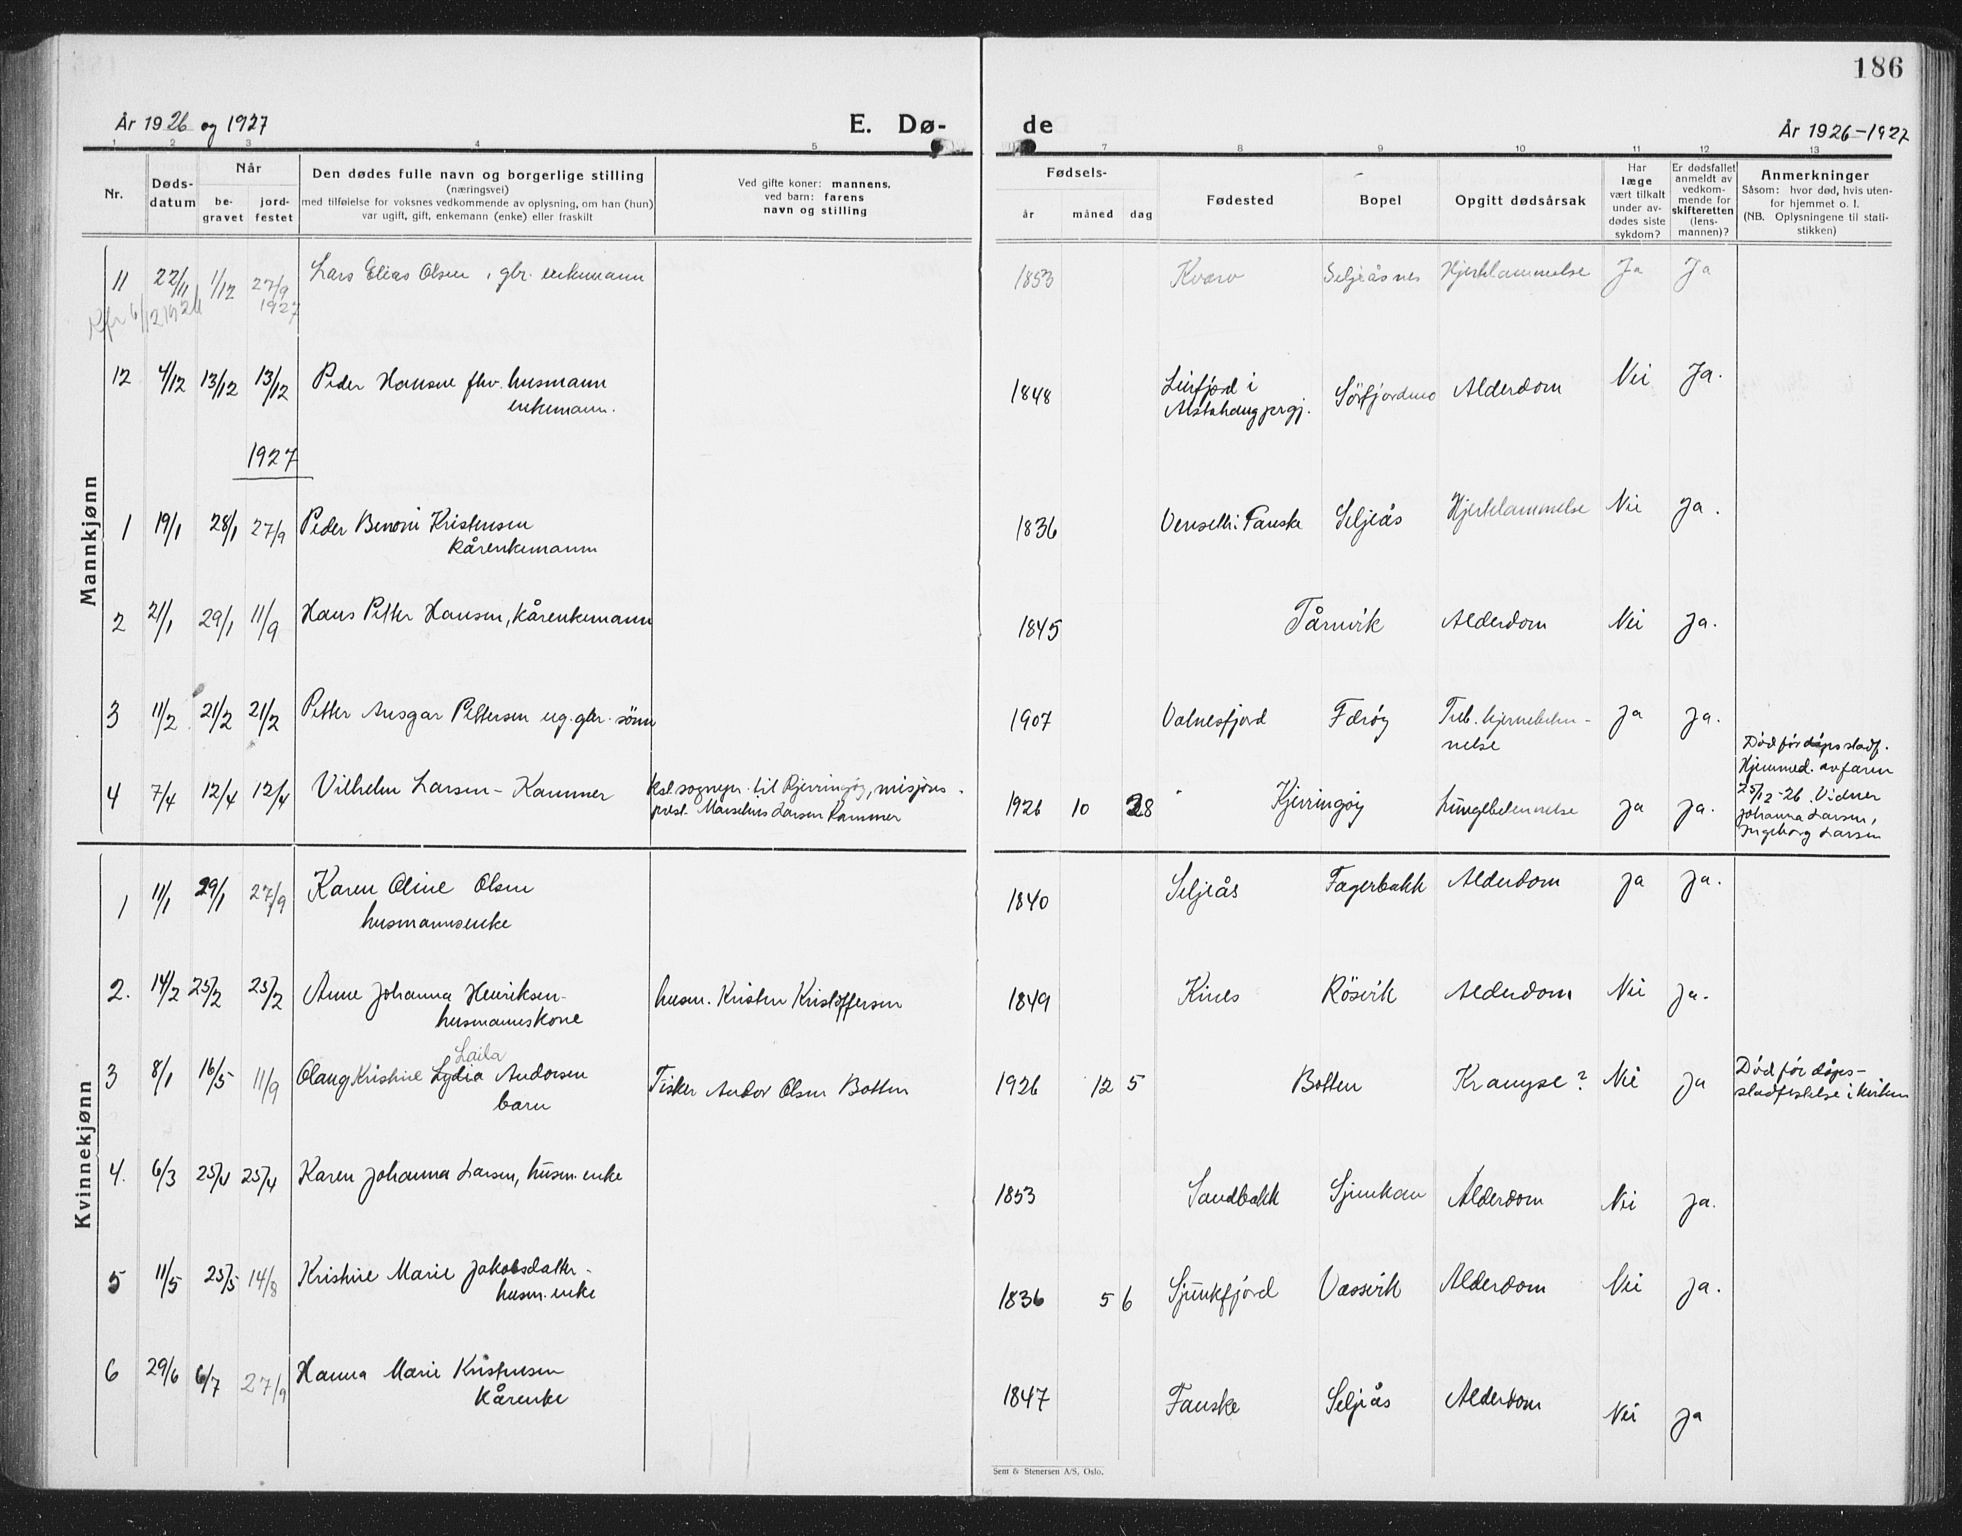 186
År 1926 og 1927
E. Dø-
de
År 1926-1927
1 2 3 4 5 7 8 9 10 11 12 13
Nr.
Døds-
datum
Når
be-
gravet
jord-
festet
Den dødes fulle navn og borgerlige stilling
(næringsvei)
med tilføielse for voksnes vedkommende av oplysning, om han (hun)
var ugift, gift, enkemann (enke) eller fraskilt
Ved gifte koner: mannens,
ved barn: farens
navn og stilling
Fødsels-
år måned dag
Fødested
Bopel
Opgitt dødsårsak
Har
læge
vært tilkalt
under av-
dødes siste
sykdom?
Er dødsfallet
anmeldt av
vedkom-
mende for
skifteretten
(lens-
mannen)?
Anmerkninger
Såsom: hvor død, hvis uten-
for hjemmet o. l.
(NB. Oplysningene til stati-
stikken)
Mannkjønn
11 22/11 1/12 27/9 Lars Elias Olsen, gbr. enkemann 1853 Kvarv Seljeåsnes Hjerklammelse Ja Ja
6/12 1926 1927
12 4/12 13/12 13/12 Peder Hansen fhv. husmann 1848 Leirfjord i Sörfjordmo Alderdom Nei Ja.
enkemann. Alstahaug prgj.
1927
1 19/1 28/1 27/9 Peder Benoni Kristensen 1836 Venseth i Fauske Seljeås Hjerklammelse Nei Ja.
kårenkemann
2 21/1 29/1 11/9 Hans Petter Hansen, kårenkemann 1845 Tårnvik Alderdom Nei Ja.
3 11/2 21/2 21/2 Petter Ansgar Pettersen ug. gbr. sönn 1907 Valnesfjord Færöy Tub. hjernebeten- Ja Ja.
nelse
4 7/4 12/4 12/4 Vilhelm Larsen-Kammer sognepr. til Kjerringöy, misjons- 1926 10 28 Kjerringöy lungebetennelse Ja Ja.
prest Marselius Larsen Kammer
Död för dåps stadf.
Hjemmed. av faren
25/12-26. Vidner
Johanna Larsen,
Ingeborg Larsen
Kvinnekjønn
1 11/1 29/1 27/9 Karen Oline Olsen 1840 Seljeås Fagerbakk Alderdom Ja Ja.
husmannsenke
2. 14/2 25/2 25/2 Anne Johanna Henriksen- husm. Kristen Kristoffersen 1849 Kines Rösvik Alderdom Nei Ja.
husmannskone
Laila
3 8/1 16/5 11/9 Olaug Kristine Lydia Andorsen Fisker Andor Olsen Botten 1926 12 5 Botten Krampe? Nei Ja Död för dåps-
barn stadfestelse i kirken
4. 6/3 25/4 25/4 Karen Johanna Larsen, husm. enke 1853 Sandbakk Sjunkan Alderdom Nei Ja.
5 11/5 25/5 14/8 Kristine Marie Jakobsdatter- 1836 5 6 Sjunkfjord Vassvik Alderdom Nei Ja.
husm. enke
6 29/6 6/7 27/9 Hanna Marie Kristensen 1847 Fauske Seljeås Alderdom Nei Ja
kårenke
Sem & Stenersen A/S, Oslo.